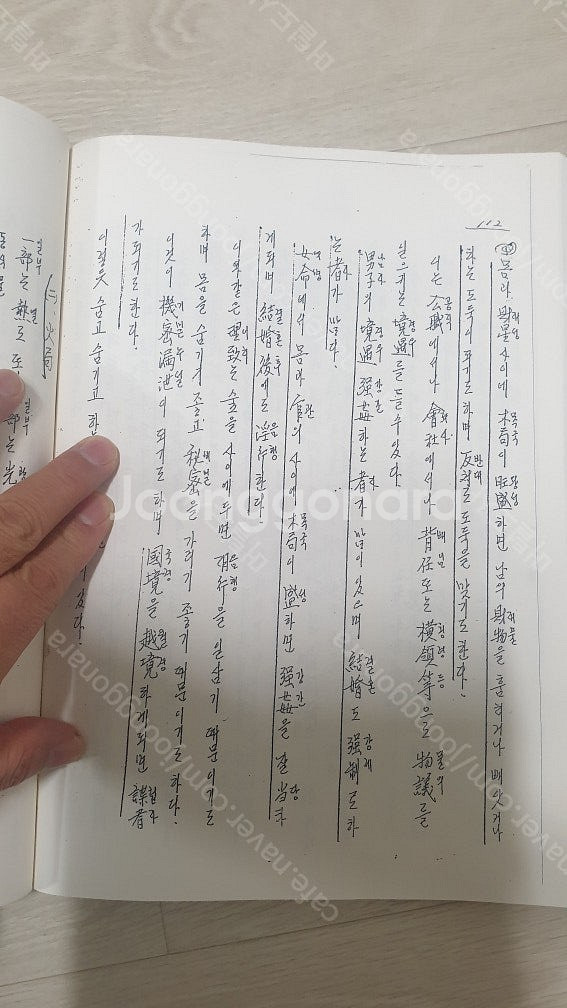 112
④ 몸과 財星사이에 木局이 旺盛하면 남의 財物을 훔치거나 빼앗거나
하는 도둑이 되기도 하며 反對로 도둑을 맞기도 한다.
이는 公職에서나 會社에서나 背任 또는 橫領等으로 物議를
일으키는 境遇를 들수있다.
男子의 境遇 强姦하는 者가 많이 있으며 結婚도 强制로 하
는 者가 많다.
女命에서 몸과 官의 사이에 木局이 盛하면 强姦을 잘 當하
게되며 結婚後에도 淫行한다.
이와같은 理致는 숲을 사이에두면 淫行을 일삼기 때문이기도
하며 몸을 숨기기 좋고 秘密을 가리기 좋기 때문이기도 하다.
이것이 機密漏泄이 되기도 하며 國境을 越境하게되면 諜者
가 되기도 한다.
이렇듯 숨고 숨기고 하
있다.
火局
一部는 熱로 또 一部는 光
Joonggonara
cafe.naver.com/joonggonara